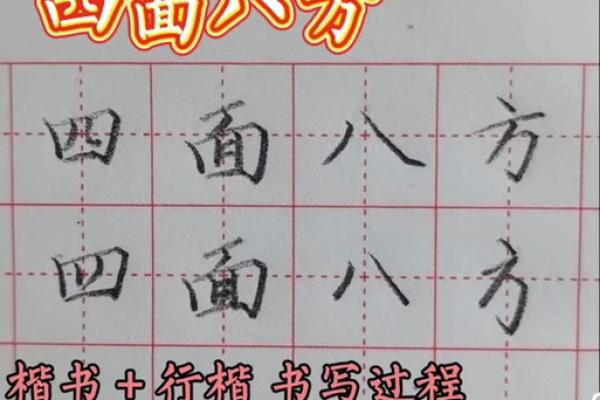 四面八方
四面八方
四面八方
楷书+行楷 书写过程